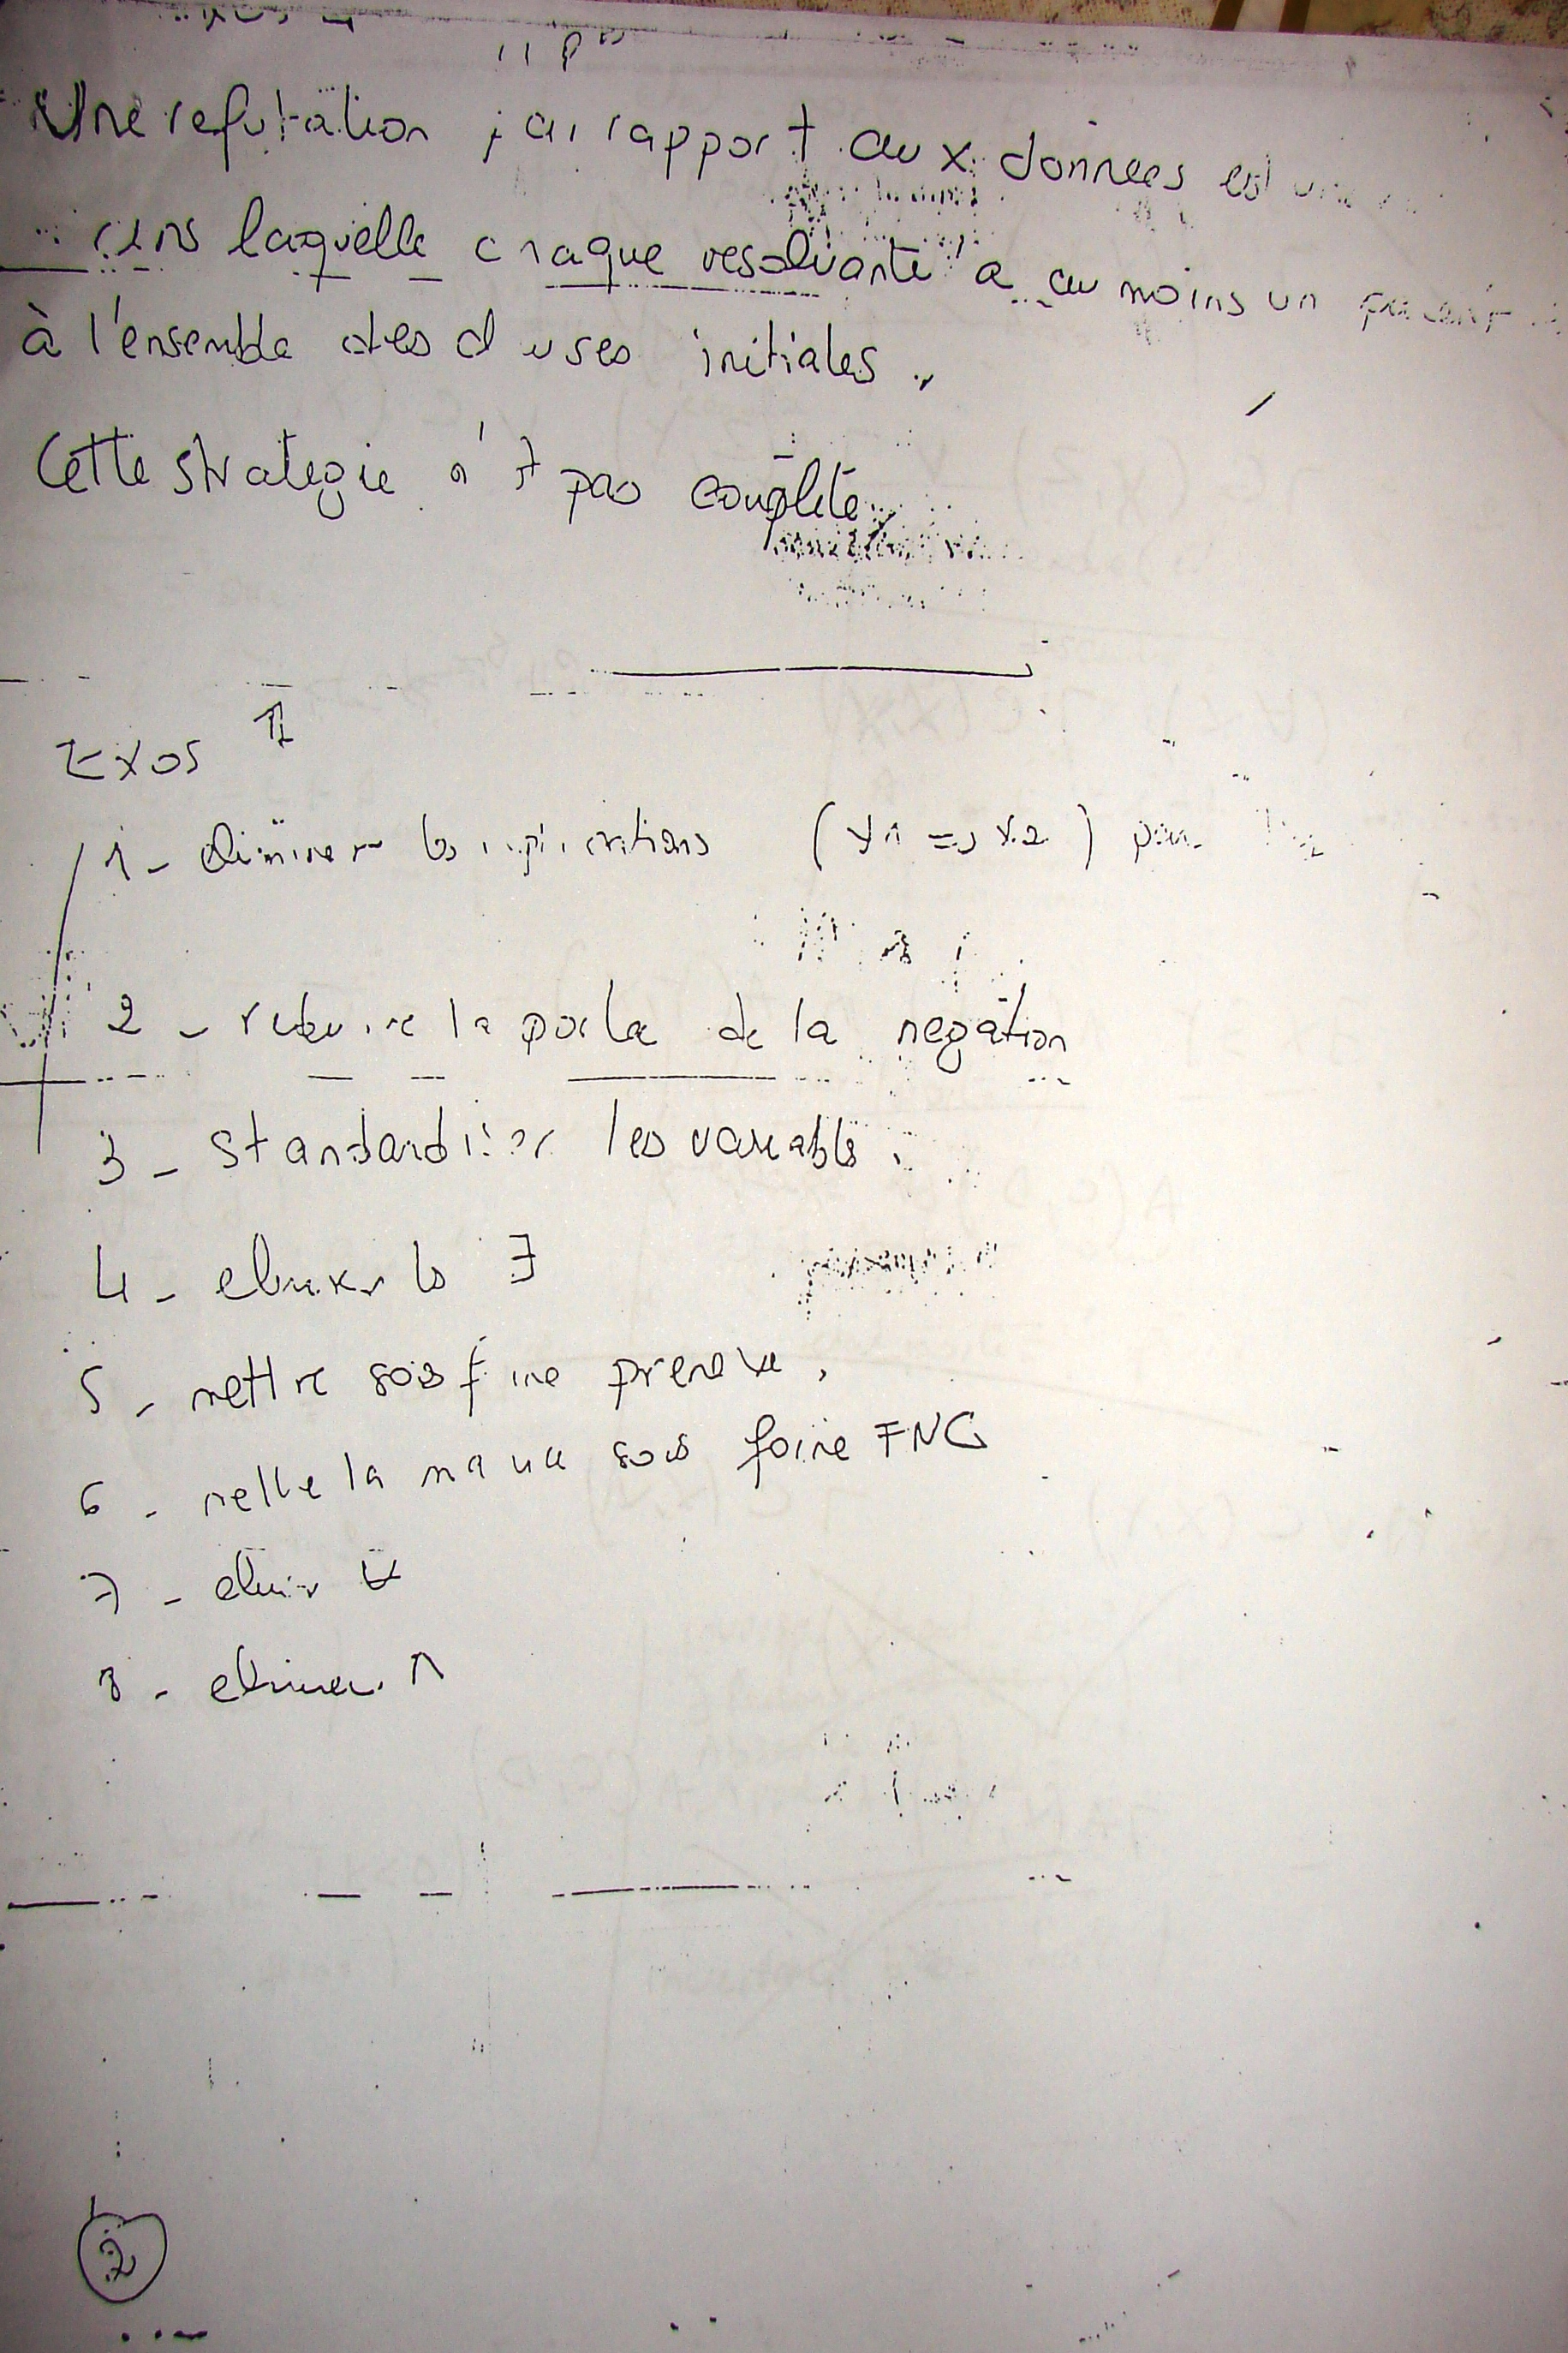 Une refutation par rapport aux donnees est une
dans laquelle chaque resolvante a au moins un parent
à l'ensemble des clauses initiales.
Cette strategie n' pas complète
Exos 1
1 - eliminer les implications (x1 => x2) par
2 - reduire la porte de la negation
3 - standardiser les variables.
4 - eliminer les ∃
5 - mettre sois forme prenexe.
6 - mettre la sois forme FNC
7 - elimir ∀
8 - eliminer ∧
2